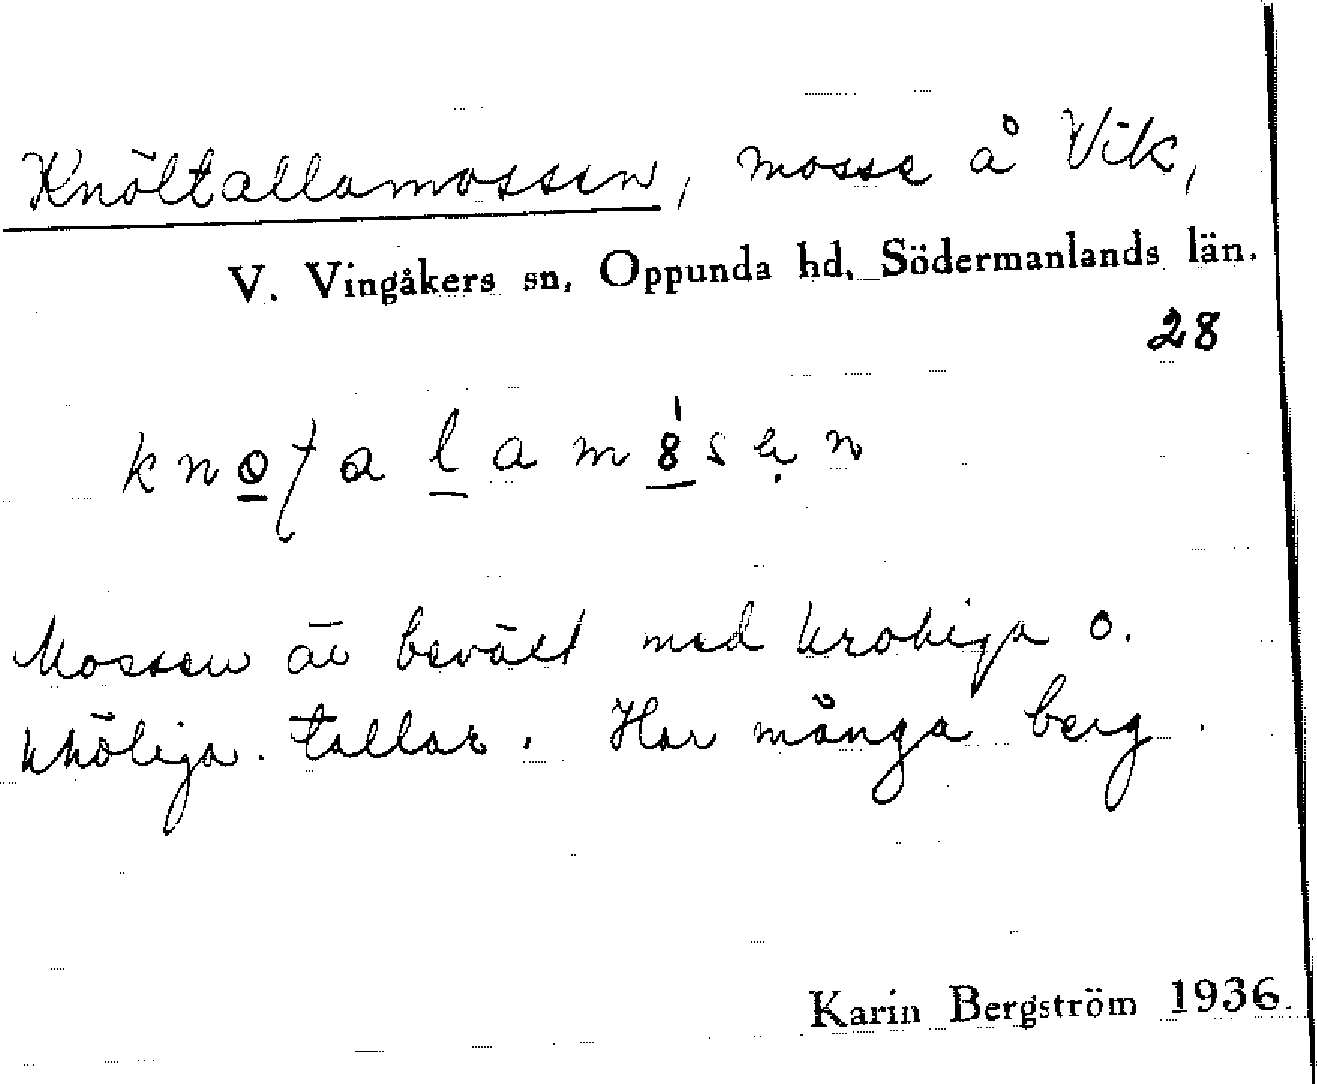 Knöltallamossen, mosse å Vik,
V. Vingåkers sn, Oppunda hd, Södermanlands län.
28
Mossen är beväxt med krokiga o.
knöliga tallar. Har många berg.
Karin Bergström 1936.